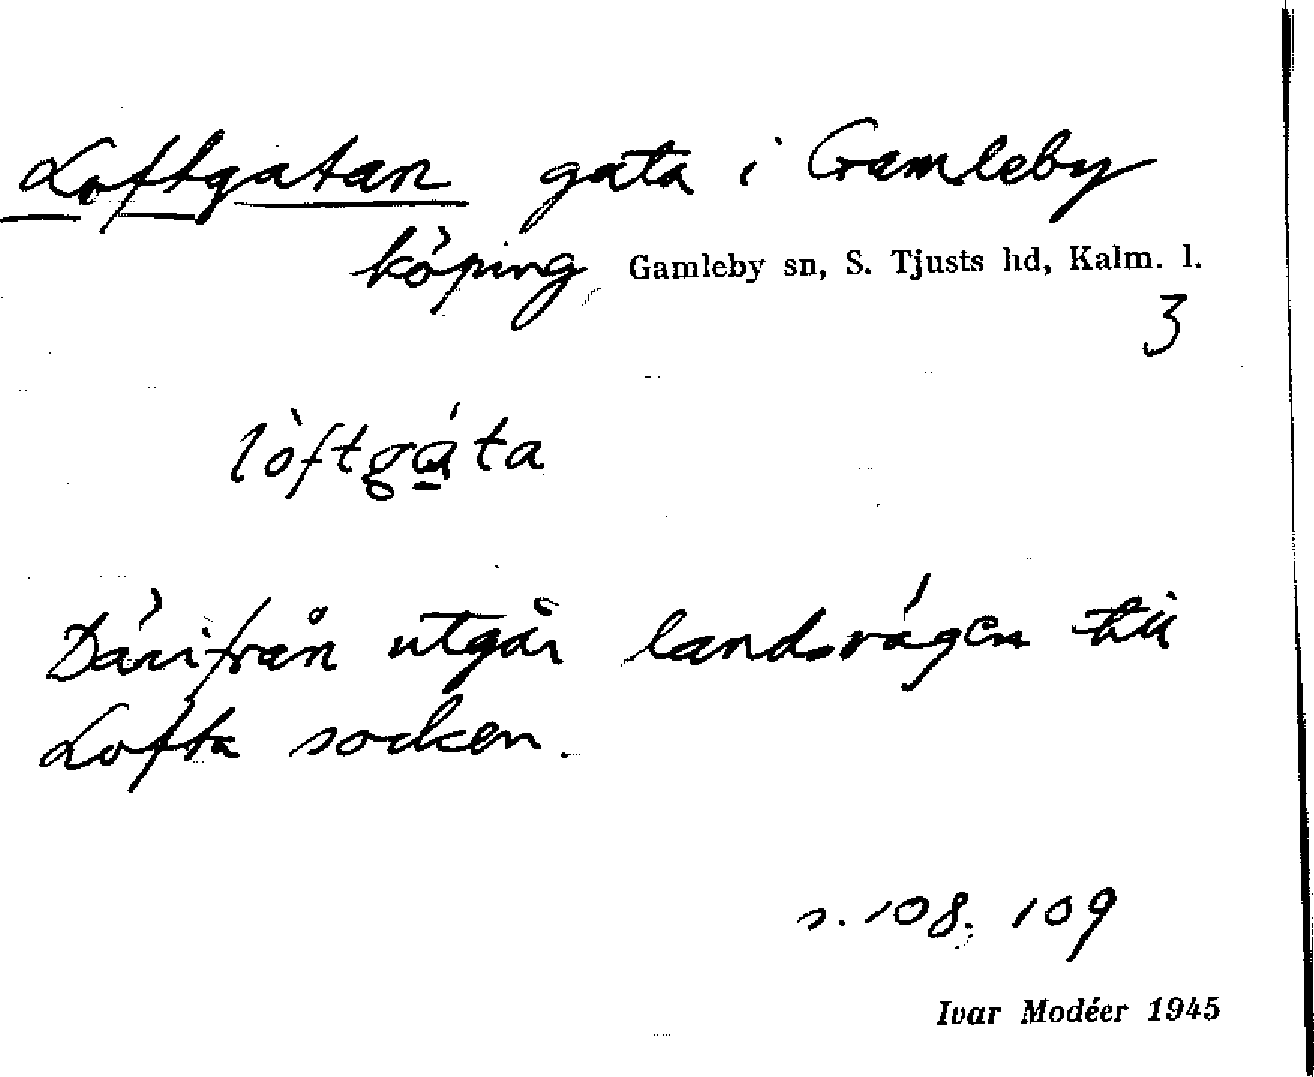 Loftgatan gata i Gamleby
köping Gamleby sn, S. Tjusts hd, Kalm. l.
3
lòftgáta
Därifrån utgår landsvägen till
Lofta socken.
s. 108. 109
Ivar Modéer 1945